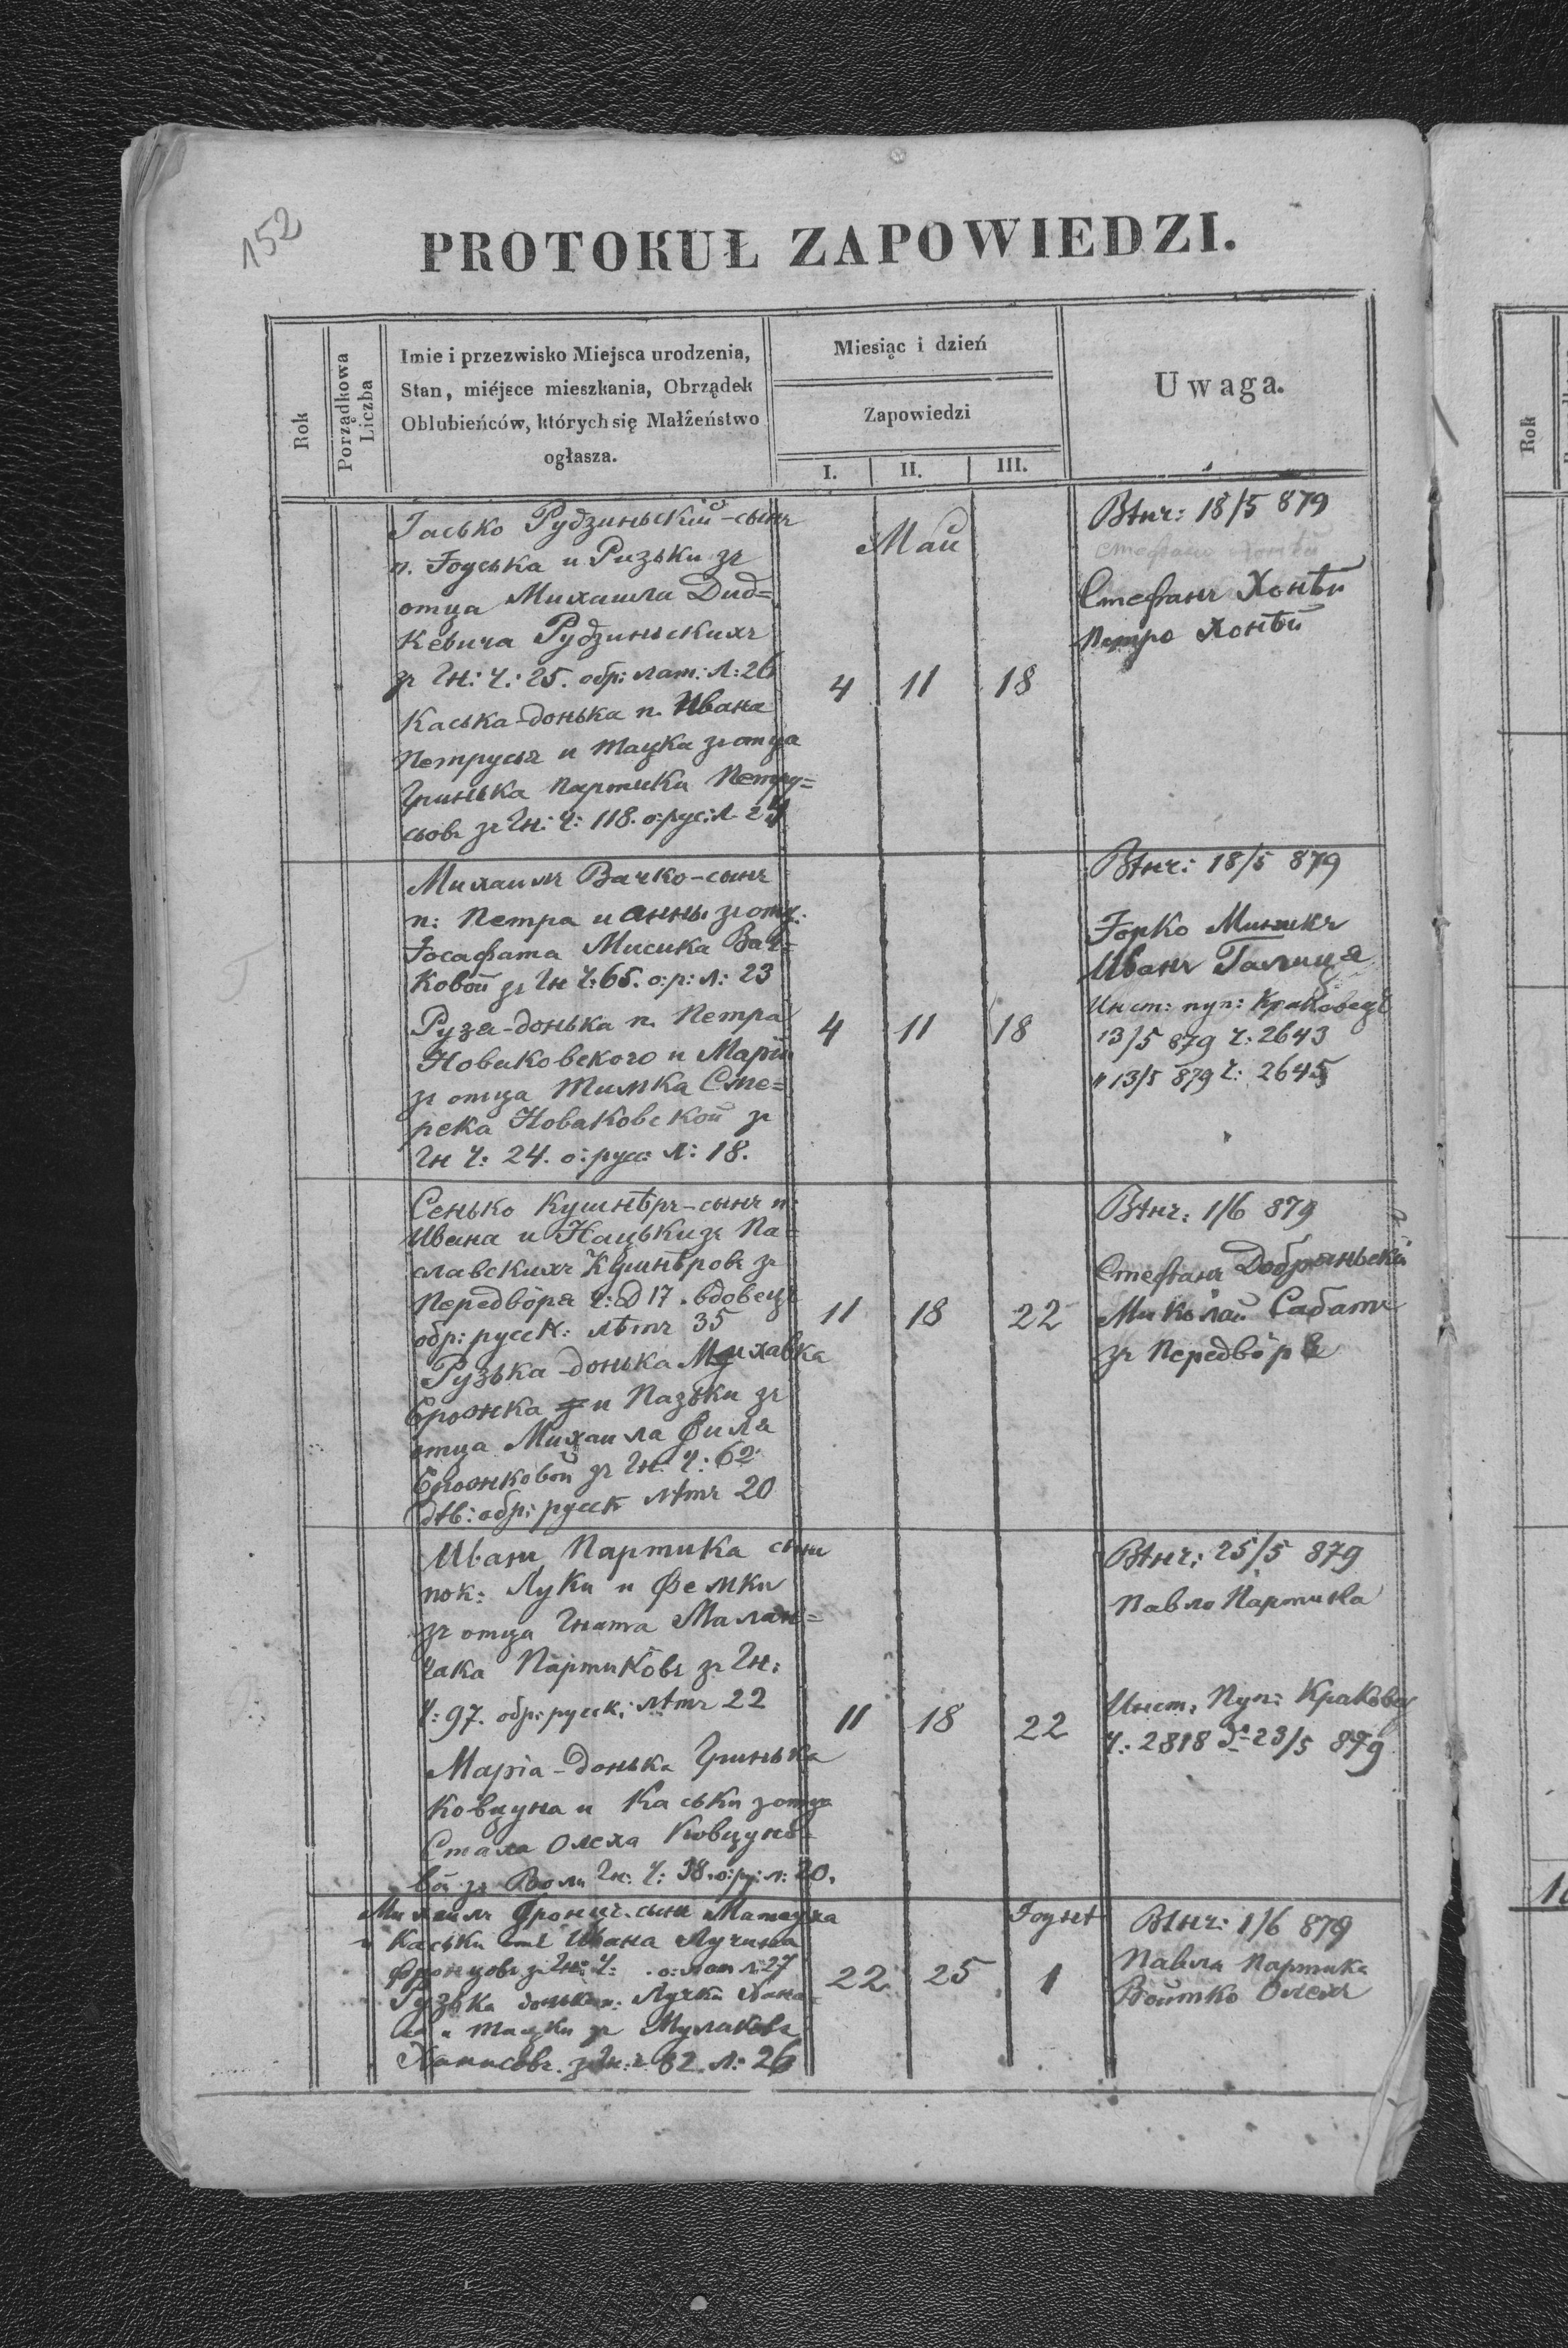 152
PROTOKUŁ ZAPOWIEDZI.
Rok
Porządkowa Liczba
Imie i przezwisko Miejsca urodzenia,
Stan, miéjsce mieszkania, Obrządek
Oblubieńców, których się Małżeństwo
ogłasza.
Miesiąc i dzień
Zapowiedzi
I. II. III.
Uwaga.
Гасько Рудзиньскій - сынъ
п. Іоуська и Рузьки зъ
отца Михаила Дид=
кевича Рудзиньскихъ
зъ Гн: Ч: 25. обр: лат: л: 26
Каська - донька п. Ивана
Петруся и Тацка зъ отца
Гринька Партики Петру=
сьовъ зъ Гн: Ч: 118. о: рус: л. 24
Май
4 11 18
Втнч: 18/5 879
Стефанъ Хонѣй
Стефанъ Хонѣй
Петро Хонѣй
Михаилъ Вачко - сынъ
п: Петра и Анны зъ отц:
Іосафата Мисика Вач=
ковой зъ Гн Ч: 65. о: р: л: 23
Руза - донька п. Петра
Новаковского и Маріи
зъ отца Тимка Сте=
река Новаковской зъ
Гн Ч: 24. о: русс: л: 18.
4 11 18
Втнч: 18/5 879
Іорко
Иванъ Галиця
Инст: пуп: Краковець
13/5 879 Ч: 2643
и 13/5 879 Ч: 2645
Сенько Кушнѣръ - сынъ п:
Ивана и Нацьки зъ Па=
славскихъ Кушнѣровъ зъ
Передвôря Ч: Д 17. вдовець
обр: русск: лѣтъ 35
Рузька - донька Михавка
Ерожка и Пазьки зъ
отца Михаила Филя
Ерожковой зъ Гн: Ч: 62
дѣв: обр: русск лѣтъ 20
11 18 22
Втнч: 1/6 879
Стефанъ Добряньскій
Миколай Сабатъ
зъ Передвôря
Иванъ Партика сынъ
пок: Луки и Фемки
зъ отца Гната Малан=
чака Партикôвъ зъ Гн:
Ч: 97. обр: русск: лѣтъ 22
Марія - донька Гринька
Ковцуна и Каськи з отца
Стаха Олеха Ковцунô=
вой зъ Воли Гн: Ч: 38. о: ру: л: 20.
11 18 22
Втнч: 25/5 879
Павло Партика
Инст. Пуп: Краковец
Ч: 2818 до 23/5 879
Михаилъ Фронцъ - сынъ Матеуха
и Каськи Ивана Лучина
Фронцовъ зъ Гн: Ч: о: лат л: 27
Рузька донька п: Луцка Хана
са и Тацки зъ Мулякôвъ
Ханасовъ. зъ Гн: Ч: 82. л: 26
Іоунѣ
22 25 1
Втнч: 1/6 879
Павло Партика
Войтко Олеха
Rok